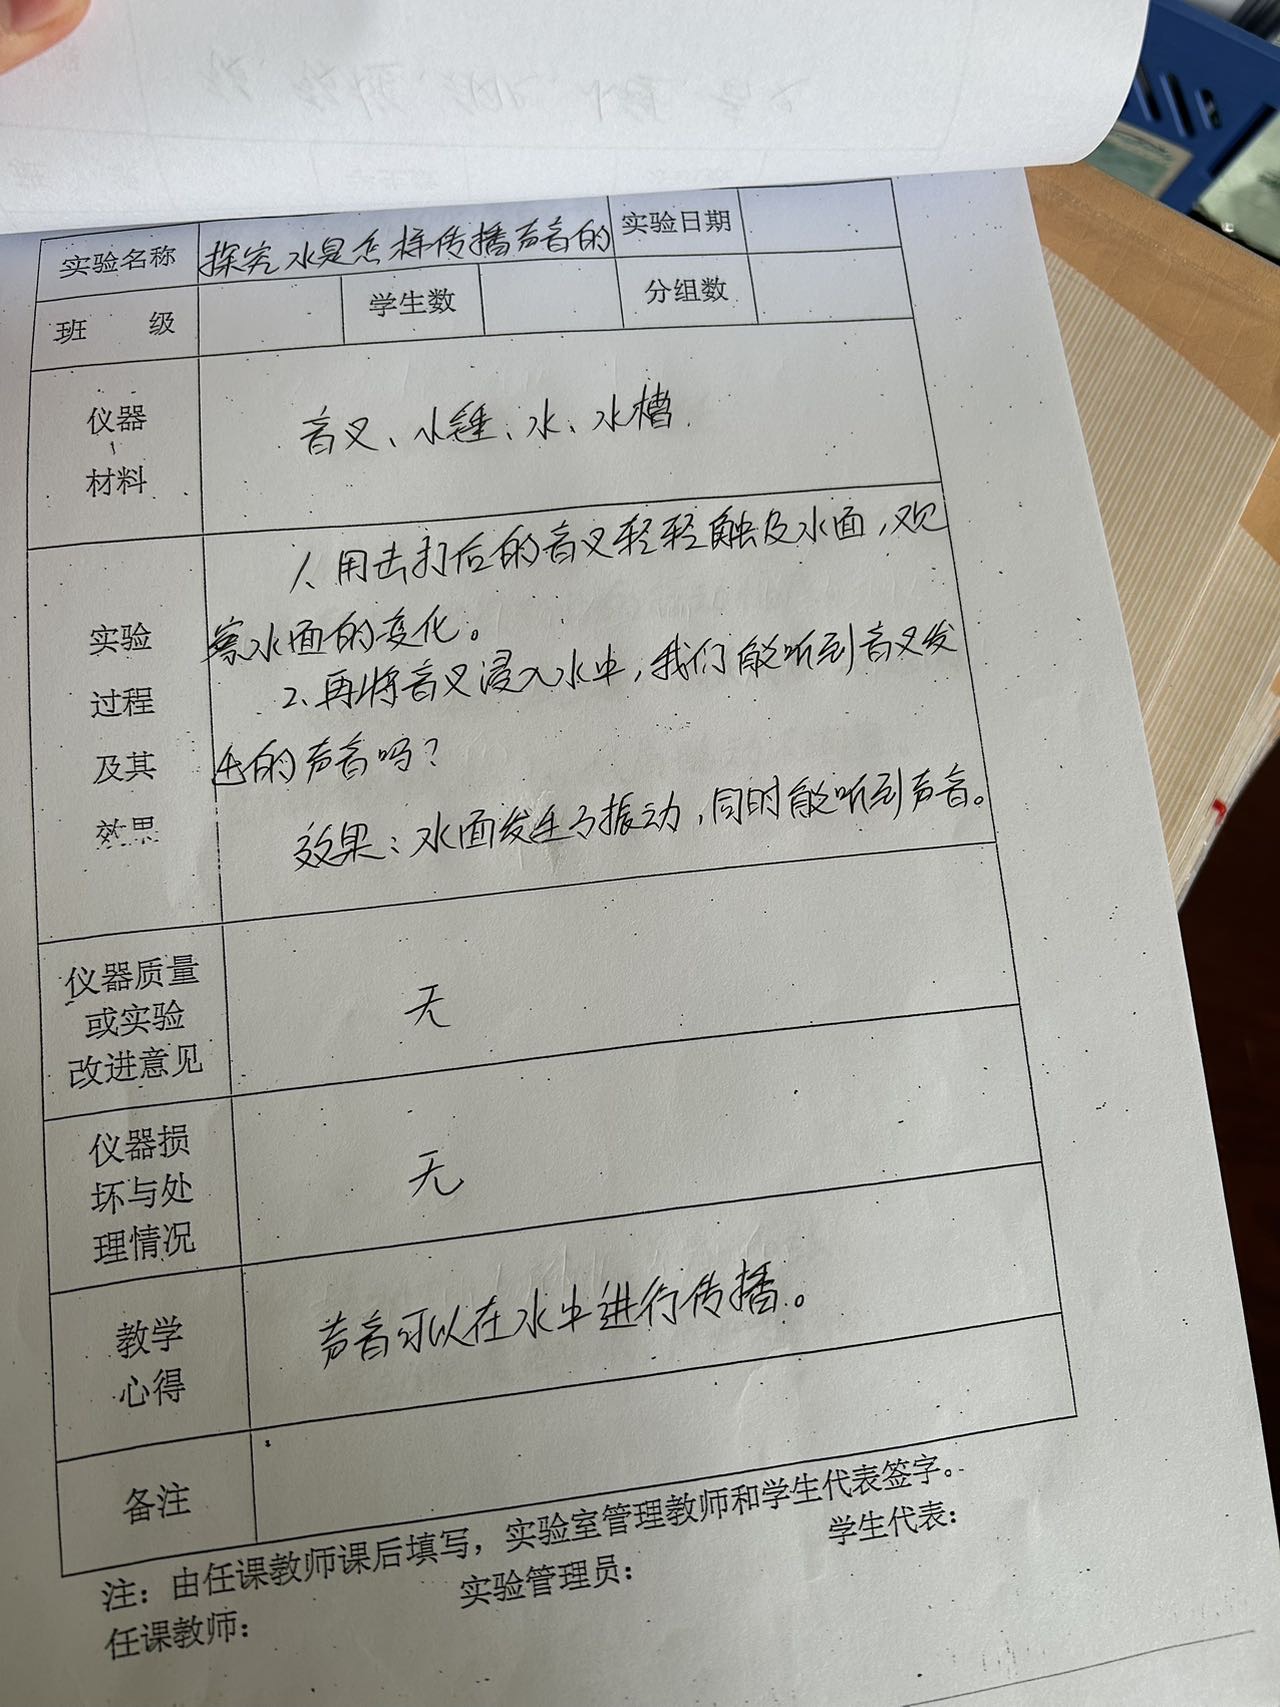 实验名称 探究水是怎样传播声音的 实验日期
班 级 学生数 分组数
仪器
材料
音叉、小锤、水、水槽.
实验
过程
及其
效果
1、用击打后的音叉轻轻触及水面,观
察水面的变化。
2、再将音叉浸入水中,我们能听到音叉发
出的声音吗?
效果:水面发生了振动,同时能听到声音。
仪器质量
或实验
改进意见
无
仪器损
坏与处
理情况
无
教学
心得
声音可以在水中进行传播。
备注
注:由任课教师课后填写,实验室管理教师和学生代表签字。
任课教师: 实验管理员: 学生代表: